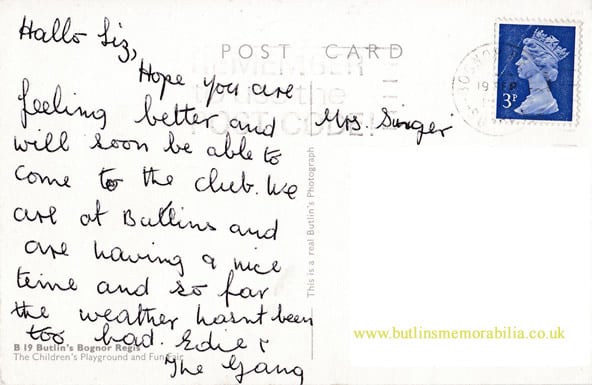 Hallo Liz,
POST CARD
Hope you are
feeling better and
will soon be able to
come to the club. We
are at Butlins and
are having a nice
time and so far
the weather hasnt been
too bad. Edie &
The Gang
B 19 Butlin's Bognor Regis
The Children's Playground and Fun Fair
This is a real Butlin's Photograph
REMEMBER
to use the
POST CODE
BOGNOR
19 SEP
3P
Mrs. Singer
www.butlinsmemorabilia.co.uk